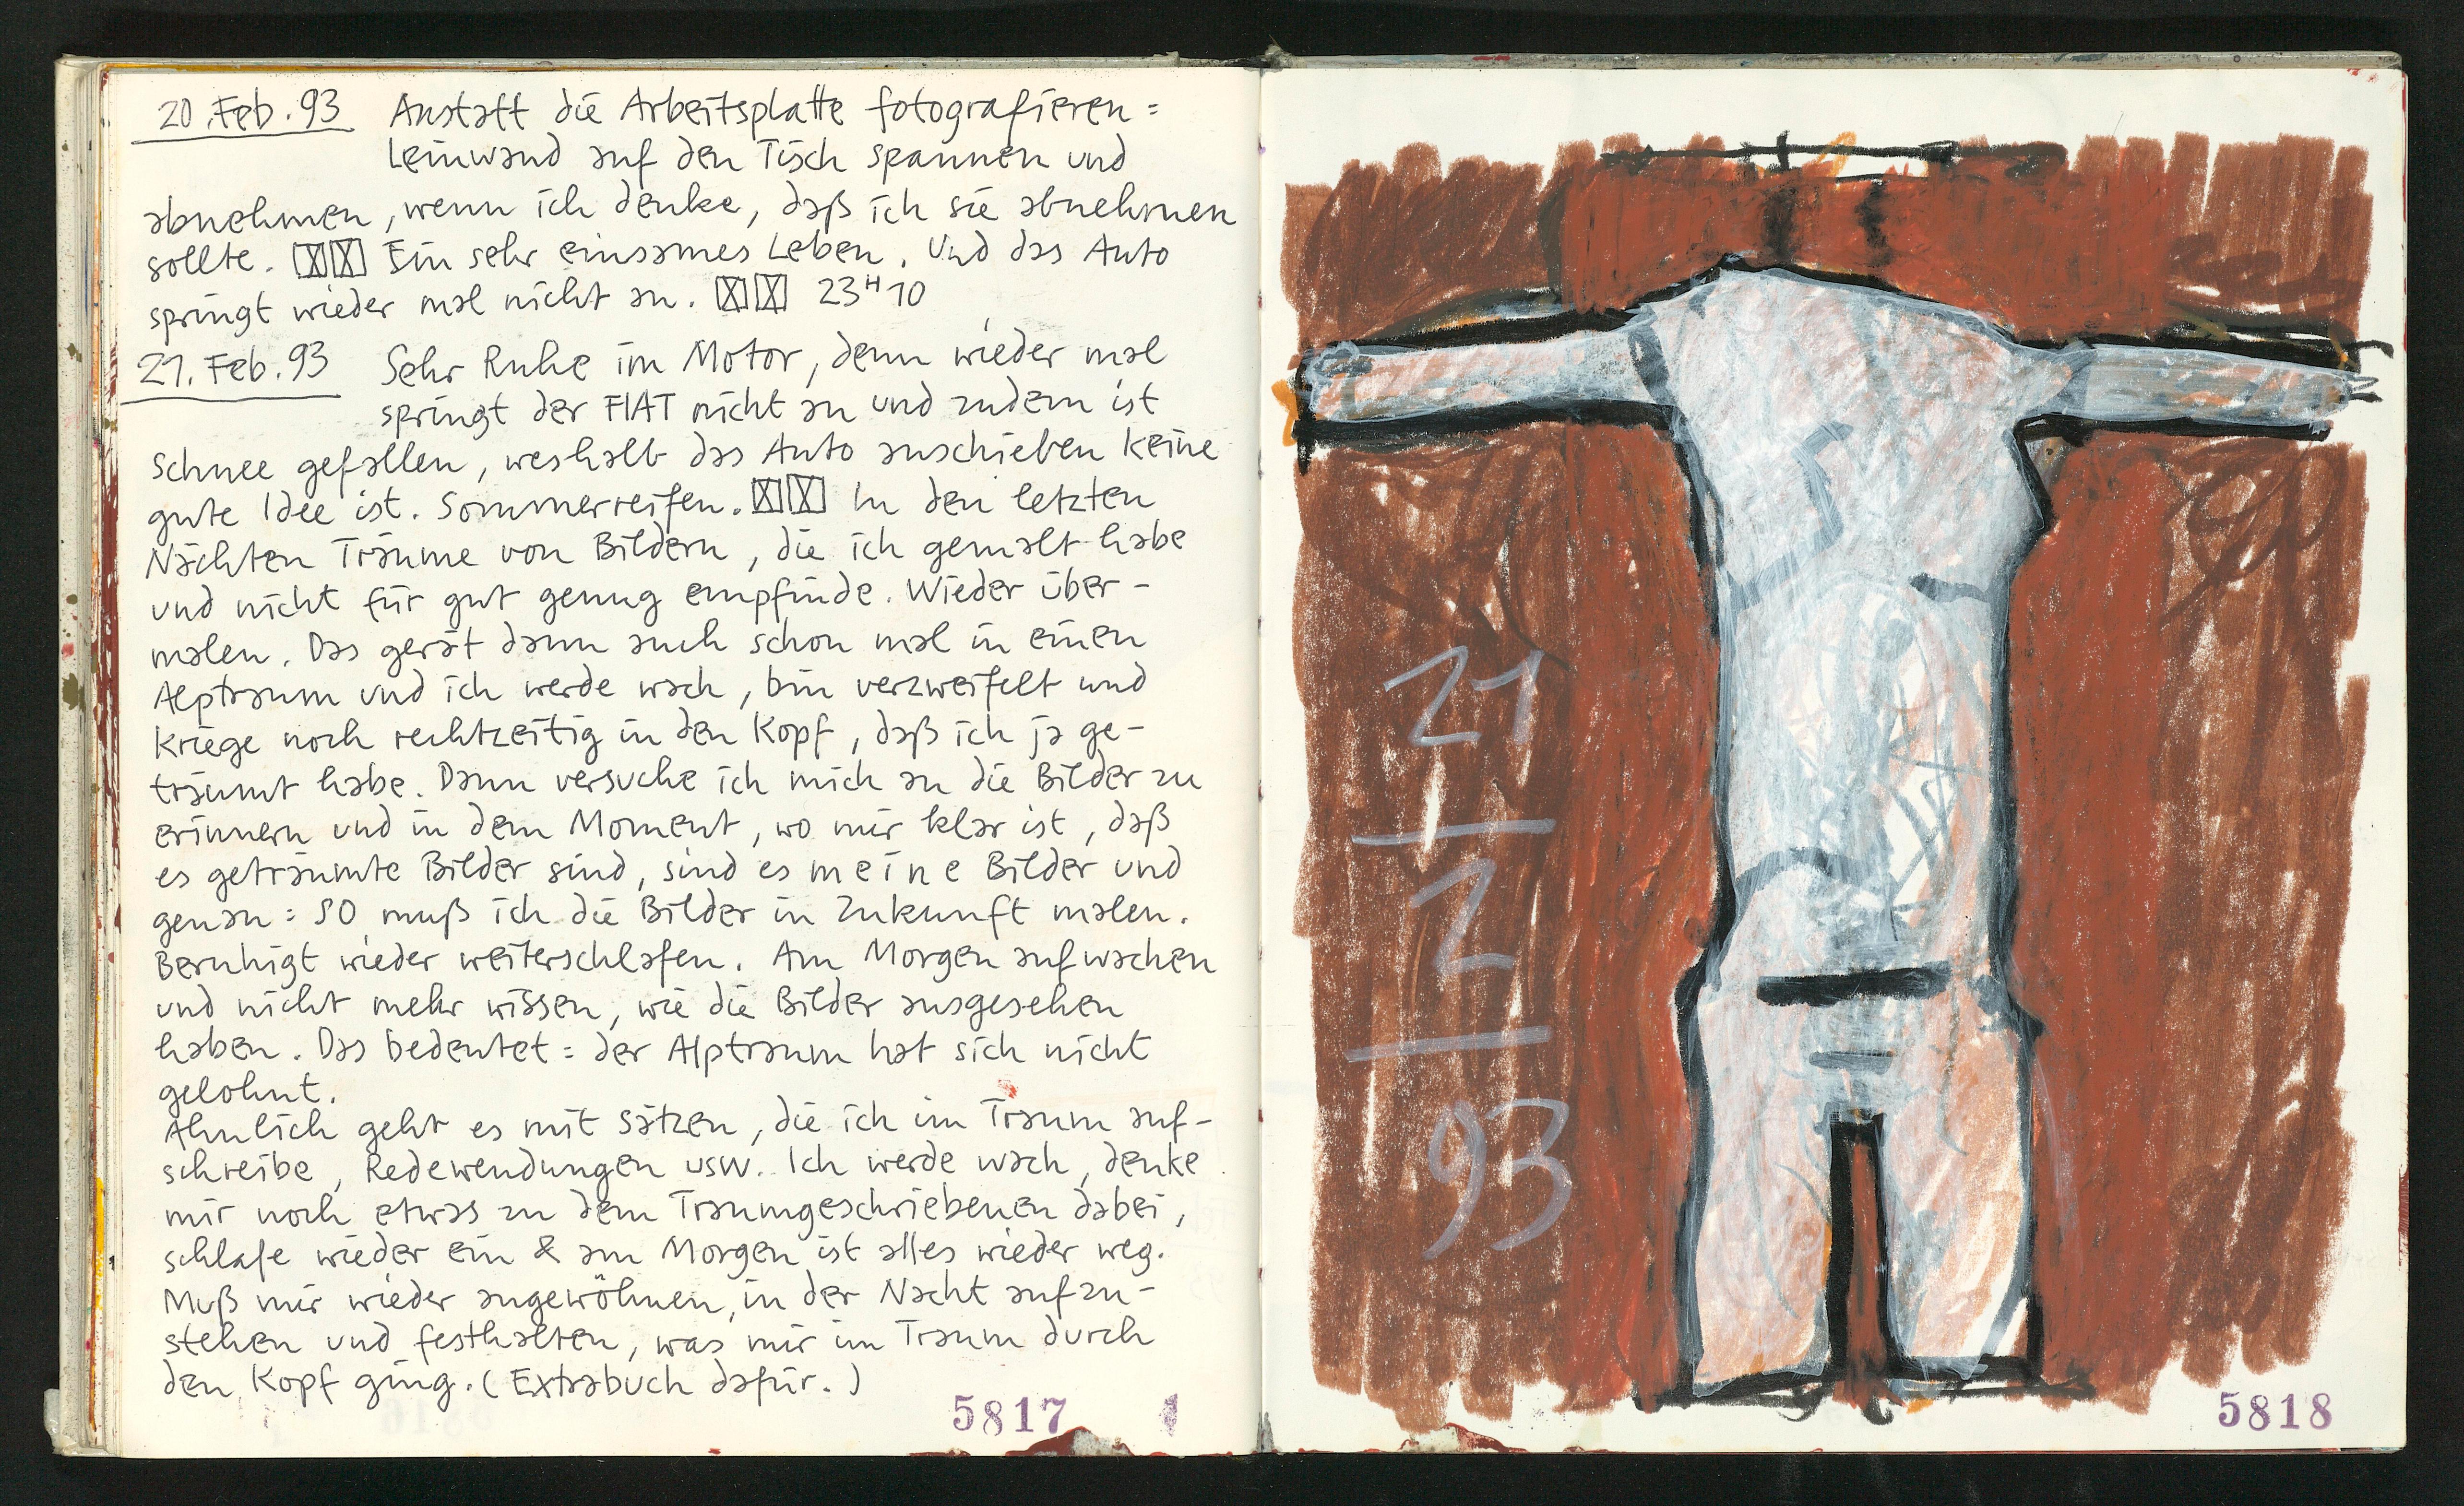 20. Feb. 93 Anstatt die Arbeitsplatte fotografieren =
Leinwand auf den Tisch spannen und
abnehmen, wenn ich denke, daß ich sie abnehmen
sollte. ☒☒ Ein sehr einsames Leben. Und das Auto
springt wieder mal nicht an. ☒☒ 23H10
21. Feb. 93 Sehr Ruhe im Motor, denn wieder mal
springt der FIAT nicht an und zudem ist
Schnee gefallen, weshalb das Auto anschieben keine
gute Idee ist. Sommerreifen. ☒☒ In den letzten
Nächten Träume von Bildern, die ich gemalt habe
und nicht für gut genug empfinde. Wieder über-
malen. Das gerät dann auch schon mal in einen
Alptraum und ich werde wach, bin verzweifelt und
kriege noch rechtzeitig in den Kopf, daß ich ja ge-
träumt habe. Dann versuche ich mich an die Bilder zu
erinnern und in dem Moment, wo mir klar ist, daß
es geträumte Bilder sind, sind es meine Bilder und
genau: SO muß ich die Bilder in Zukunft malen.
Beruhigt wieder weiterschlafen. Am Morgen aufwachen
und nicht mehr wissen, wie die Bilder ausgesehen
haben. Das bedeutet = der Alptraum hat sich nicht
gelohnt.
Ähnlich geht es mit Sätzen, die ich im Traum auf-
schreibe, Redewendungen usw. Ich werde wach, denke
mir noch etwas zu dem Traumgeschriebenen dabei,
schlafe wieder ein & am Morgen ist alles wieder weg.
Muß mir wieder angewöhnen, in der Nacht aufzu-
stehen und festhalten, was mir im Traum durch
den Kopf ging. (Extrabuch dafür.)
5817
21
2
93
5818